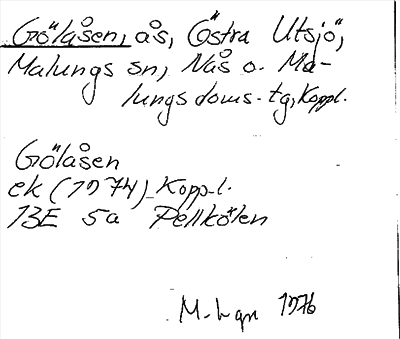 Gölåsen, ås, Östra Utsjö,
Malungs sn, Nås o. Ma-
lungs doms. tg, Koppl.
Gölåsen
ek (1974) Koppl.
13E 5a Pellkölen
M-Lgn 1976